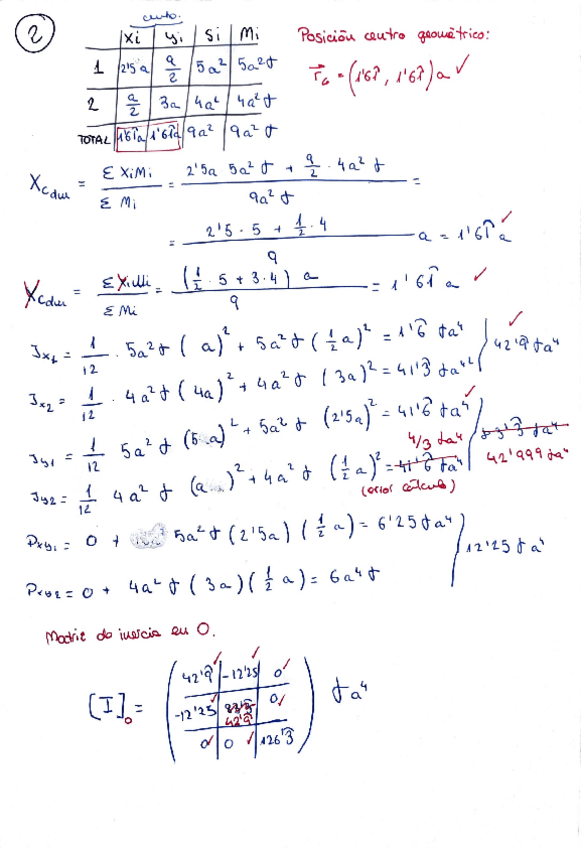 2
centro.
xi yi Si Mi
1 2'5a a/2 5a² 5a²σ
2 a/2 3a 4a² 4a²σ
TOTAL 1'61̂a 1'61̂a 9a² 9a²σ
Posición centro geométrico:
r_G = (1'61̂, 1'61̂) a ✓
X_cdm = Σ XiMi / Σ Mi = (2'5a 5a²σ + a/2 · 4a²σ) / 9a²σ =
= (2'5 · 5 + 1/2 · 4) / 9 a = 1'61̂ a ✓
Y_cdm = Σ YiMi / Σ Mi = (1/2 · 5 + 3 · 4) a / 9 = 1'61̂ a ✓
Jx1 = 1/12 · 5a²σ (a)² + 5a²σ (1/2 a)² = 1'6̂ σa⁴
42'9̂ σa⁴ ✓
Jx2 = 1/12 · 4a²σ (4a)² + 4a²σ (3a)² = 41'3̂ σa⁴
Jy1 = 1/12 5a²σ (5a)² + 5a²σ (2'5a)² = 41'6̂ σa⁴ ✓
4/3 σa⁴
42'999 σa⁴
Jy2 = 1/12 4a²σ (a)² + 4a²σ (1/2 a)² = 41'6̂ σa⁴
(error cálculo)
Pxy1 = 0 + 5a²σ (2'5a) (1/2 a) = 6'25 σa⁴
12'25 σa⁴
Pxy2 = 0 + 4a²σ (3a) (1/2 a) = 6a⁴σ
Matriz de inercia en O.
42'9̂ ✓ -12'25 ✓ 0 ✓
[I]₀ = -12'25 ✓ 83'3̂ 42'9̂ 0 ✓ σa⁴
0 ✓ 0 ✓ 126'3̂